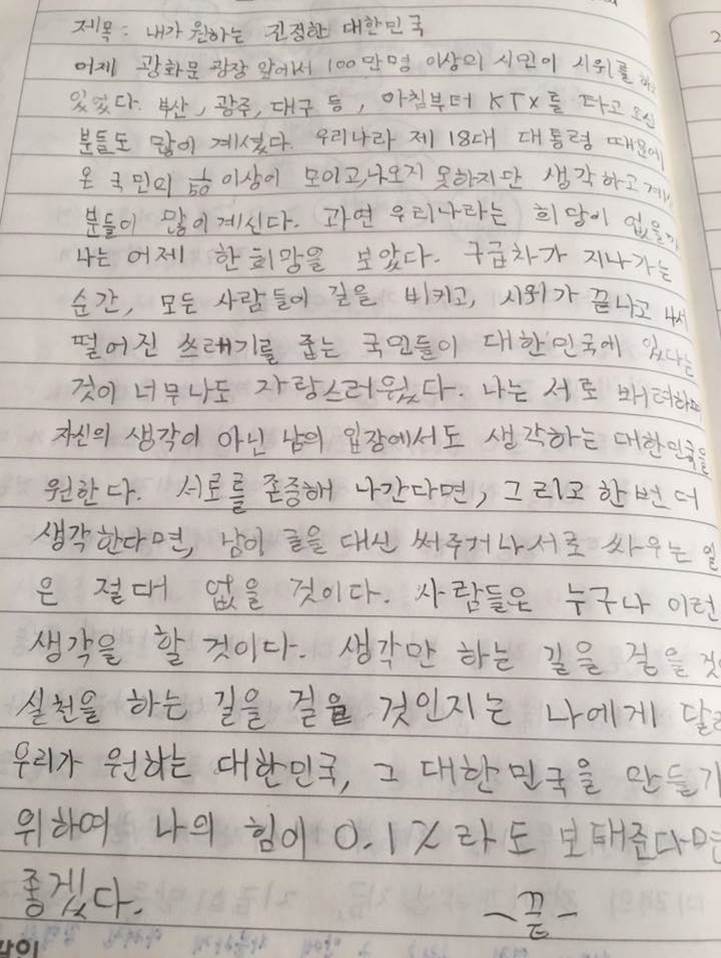 제목: 내가 원하는 진정한 대한민국
어제 광화문 광장 앞에서 100만명 이상의 시민이 시위를 하고
있었다. 부산, 광주, 대구 등, 아침부터 KTX를 타고 오신
분들도 많이 계셨다. 우리나라 제 18대 대통령 때문에
온 국민의 1/50 이상이 모이고, 나오지 못하지만 생각하고 계신
분들이 많이 계신다. 과연 우리나라는 희망이 없을까
나는 어제 한 희망을 보았다. 구급차가 지나가는
순간, 모든 사람들이 길을 비키고, 시위가 끝나고 나서
떨어진 쓰레기를 줍는 국민들이 대한민국에 있다는
것이 너무나도 자랑스러웠다. 나는 서로 배려하며
자신의 생각이 아닌 남의 입장에서도 생각하는 대한민국을
원한다. 서로를 존중해 나간다면, 그리고 한 번 더
생각한다면, 남이 글을 대신 써주거나 서로 싸우는 일
은 절대 없을 것이다. 사람들은 누구나 이런
생각을 할 것이다. 생각만 하는 길을 걸을 것
실천을 하는 길을 걸을 것인지는 나에게 달
우리가 원하는 대한민국, 그 대한민국을 만들기
위하여 나의 힘이 0.1%라도 보태준다면
좋겠다. -끝-